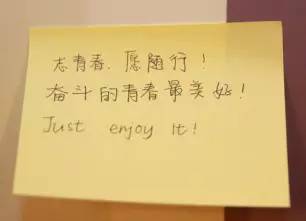 志青春、愿随行!
奋斗的青春最美好!
Just enjoy It!